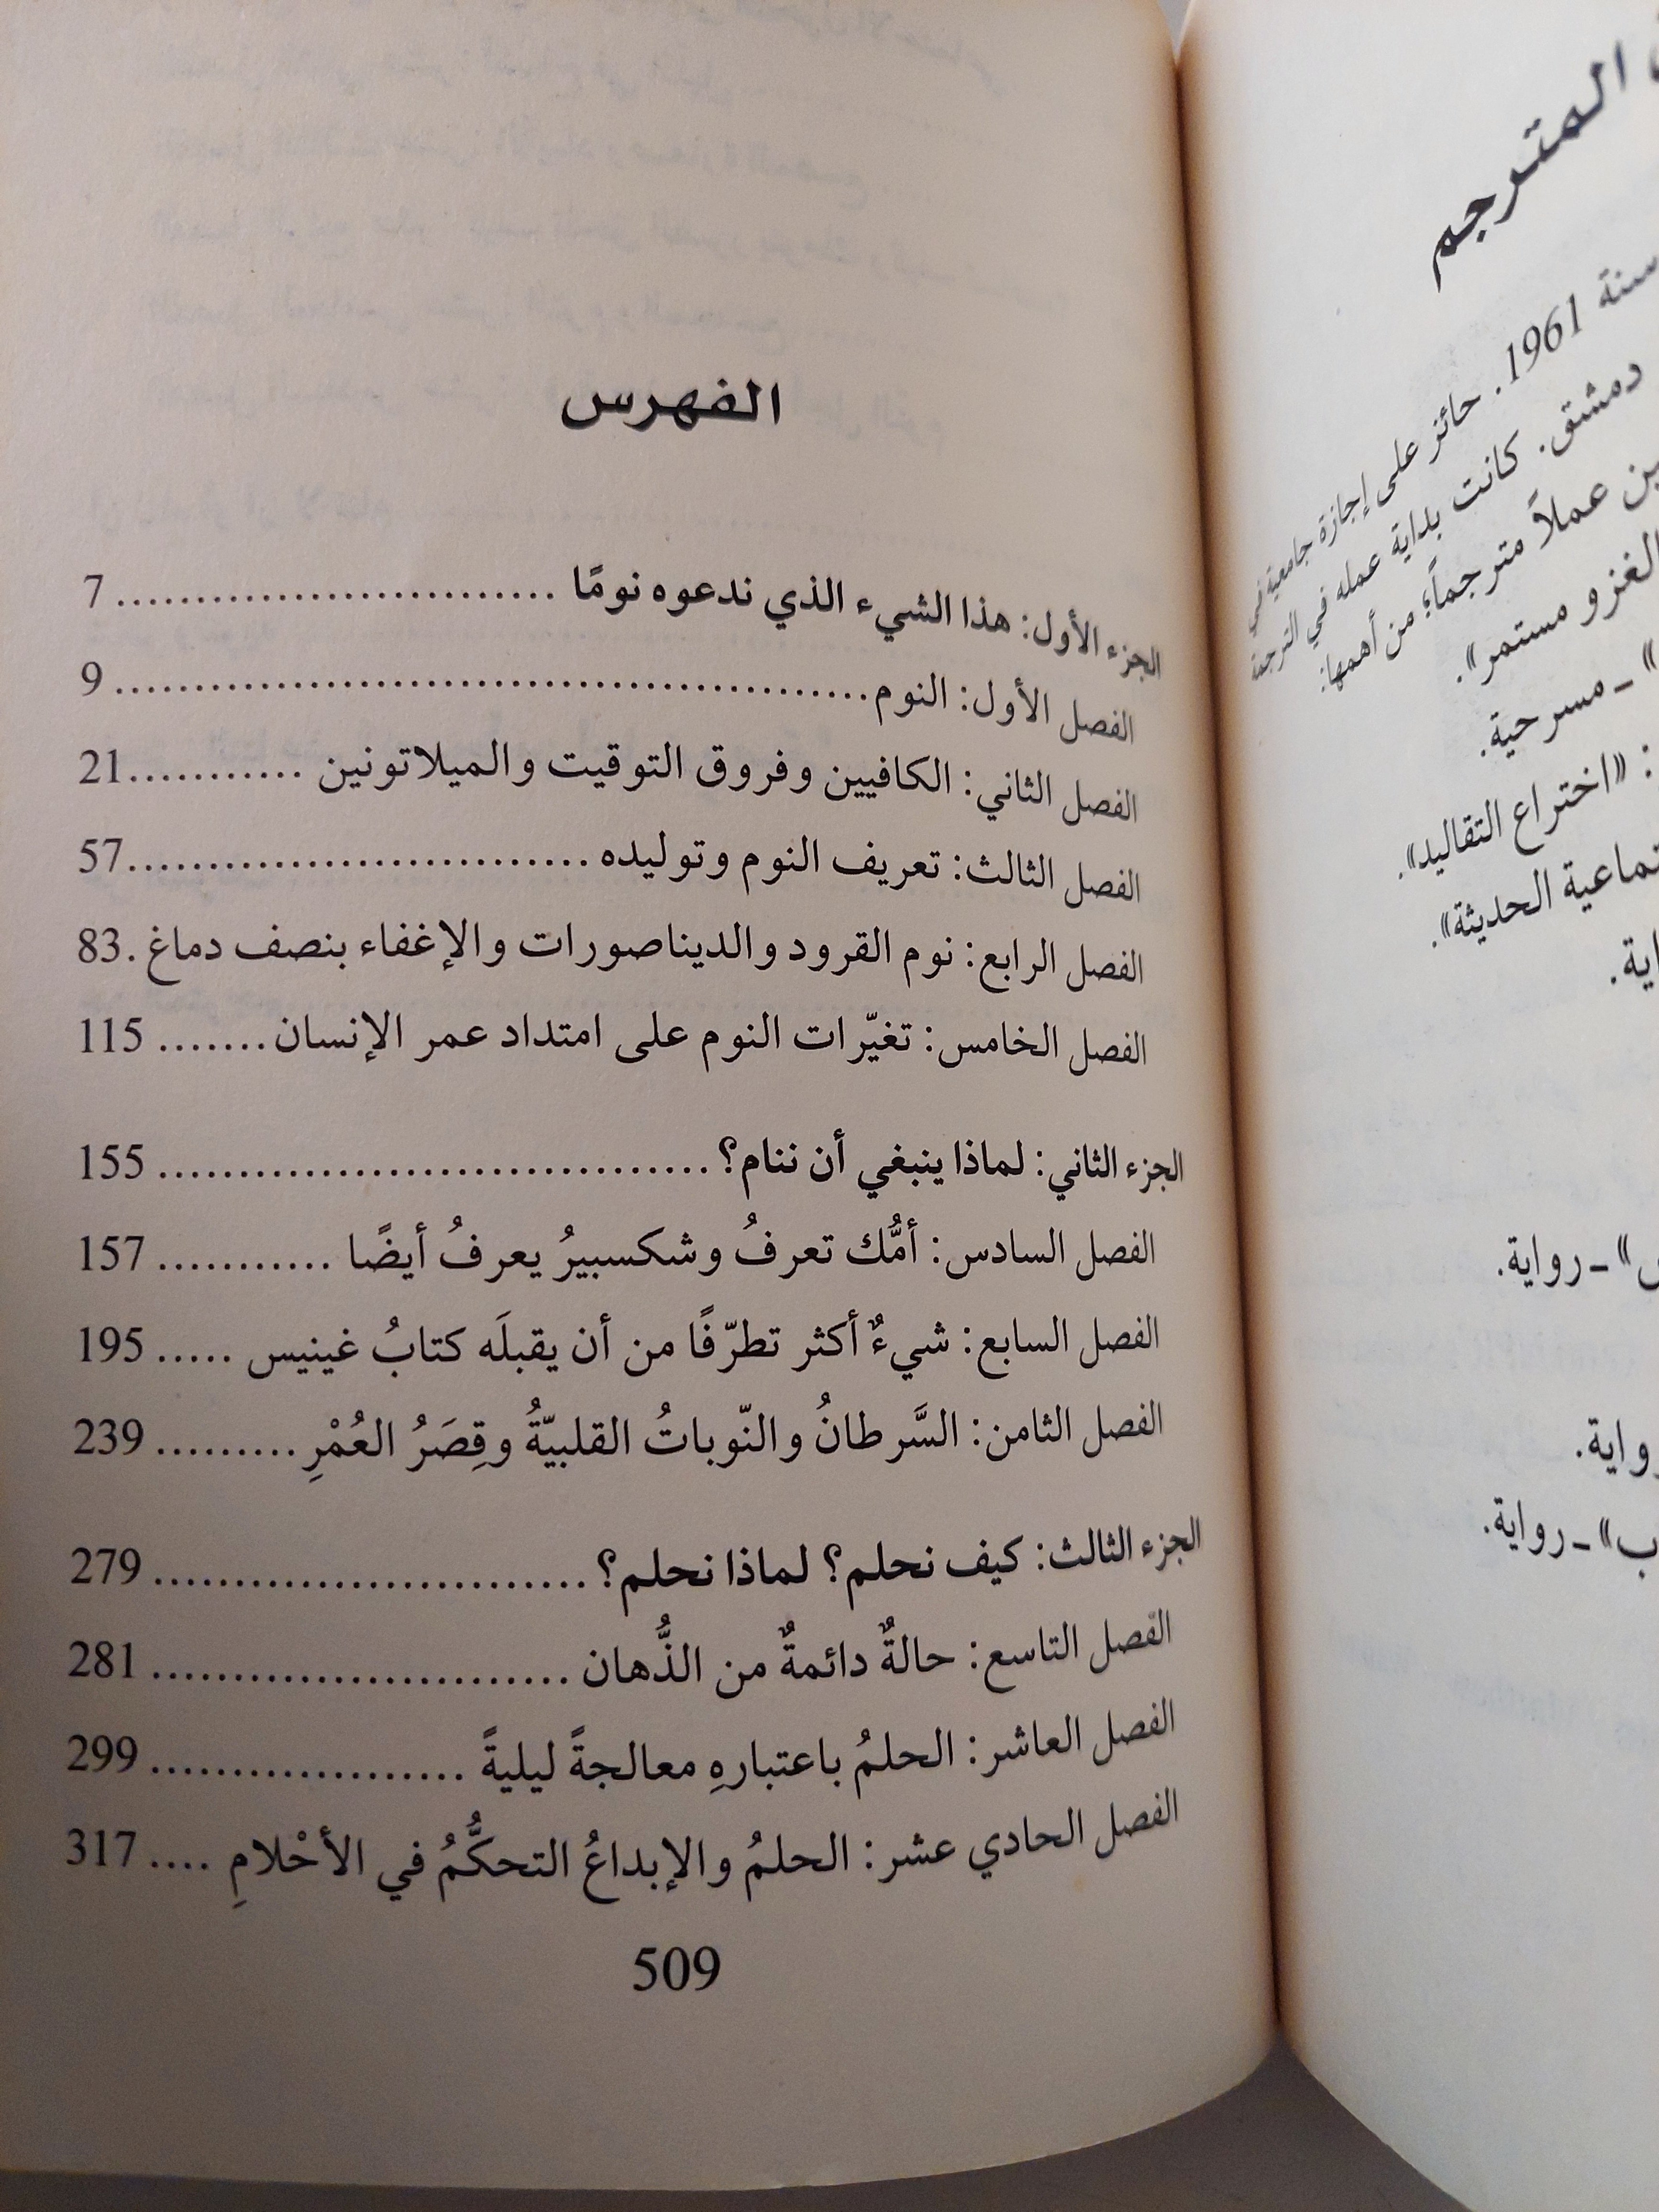 المترجم
سنة 1961. حائز على إجازة جامعية في
دمشق. كانت بداية عمله في الترجمة
عملاً مترجماً؛ من أهمها:
الغزو مستمر».
» ـ مسرحية.
: «اختراع التقاليد».
الحديثة».
» ـ رواية.
رواية.
ب» ـ رواية.
الفهرس
الجزء الأول: هذا الشيء الذي ندعوه نومًا ........................... 7
الفصل الأول: النوم.............................................. 9
الفصل الثاني: الكافيين وفروق التوقيت والميلاتونين ...........21
الفصل الثالث: تعريف النوم وتوليده ............................57
الفصل الرابع: نوم القرود والديناصورات والإغفاء بنصف دماغ .83
الفصل الخامس: تغيّرات النوم على امتداد عمر الإنسان....... 115
الجزء الثاني: لماذا ينبغي أن ننام؟.................................. 155
الفصل السادس: أمُّك تعرفُ وشكسبيرُ يعرفُ أيضًا ........... 157
الفصل السابع: شيءٌ أكثر تطرّفًا من أن يقبلَه كتابُ غينيس ..... 195
الفصل الثامن: السَّرطانُ والنّوباتُ القلبيّةُ وقِصَرُ العُمْرِ......... 239
الجزء الثالث: كيف نحلم؟ لماذا نحلم؟........................... 279
الفصل التاسع: حالةٌ دائمةٌ من الذُّهان .......................... 281
الفصل العاشر: الحلمُ باعتبارهِ معالجةً ليليةً .................... 299
الفصل الحادي عشر: الحلمُ والإبداعُ التحكُّمُ في الأحْلامِ .... 317
509